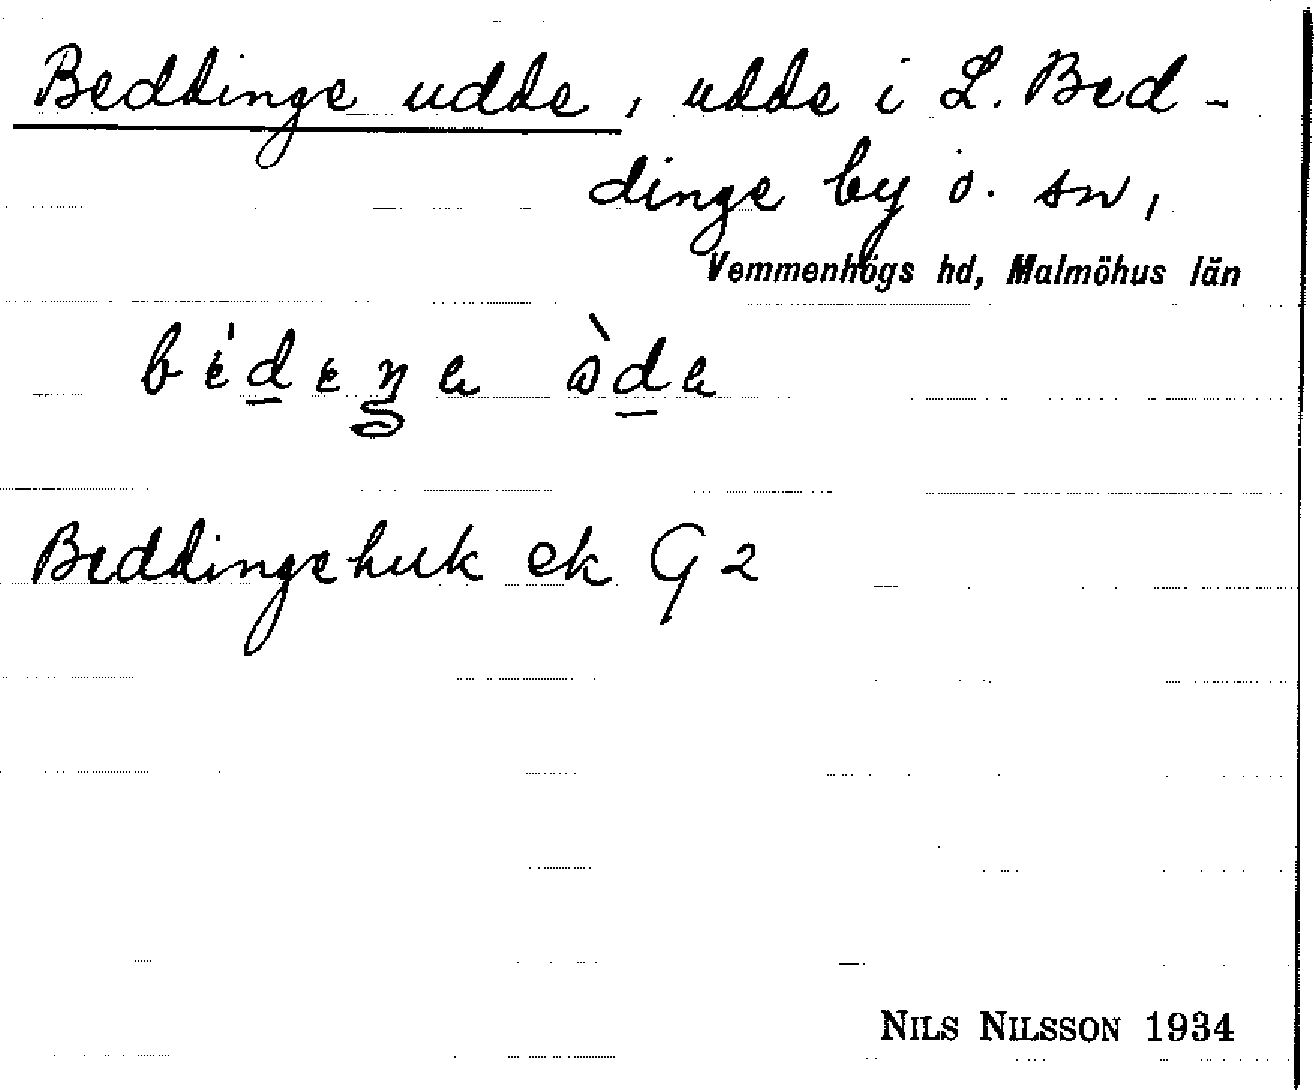 Beddinge udde, udde i L. Bed-
dinge by o. sn,
Vemmenhögs hd, Malmöhus län
Beddingehuk ek G2
NILS NILSSON 1934